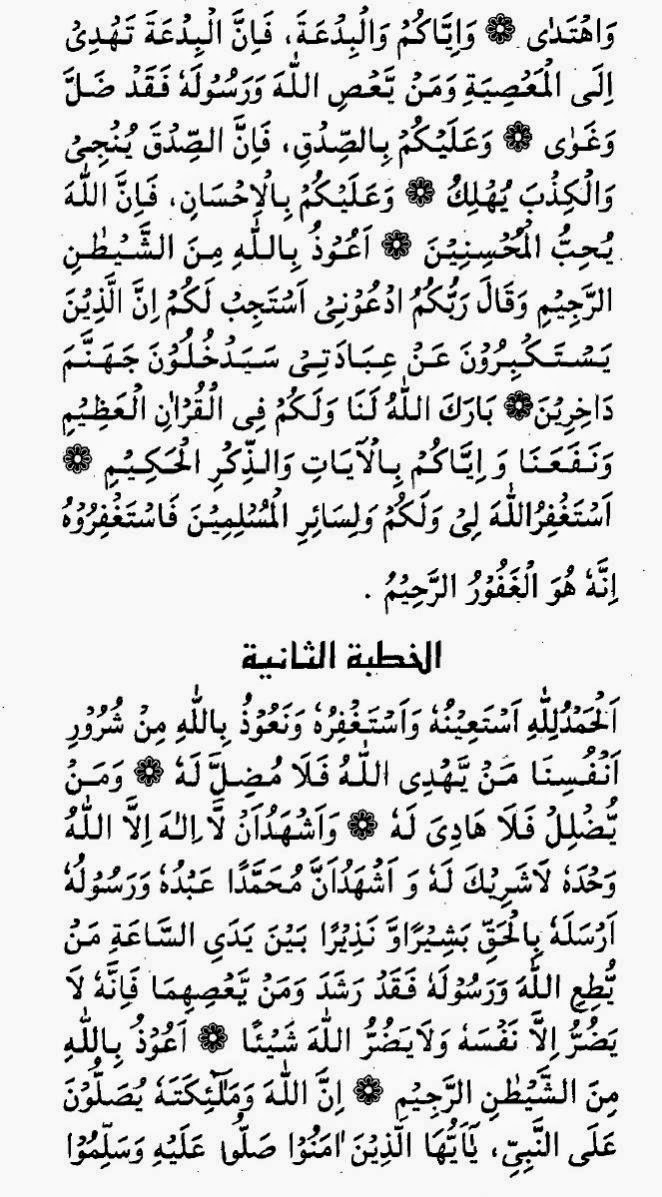 وَاهْتَدٰى ۞ وَاِيَّاكُمْ وَالْبِدْعَةَ، فَاِنَّ الْبِدْعَةَ تَهْدِىْ
اِلَى الْمَعْصِيَةِ وَمَنْ يَّعْصِ اللّٰهَ وَرَسُوْلَهٗ فَقَدْ ضَلَّ
وَغَوٰى ۞ وَعَلَيْكُمْ بِالصِّدْقِ، فَاِنَّ الصِّدْقَ يُنْجِىْ
وَالْكِذْبَ يُهْلِكُ ۞ وَعَلَيْكُمْ بِالْاِحْسَانِ، فَاِنَّ اللّٰهَ
يُحِبُّ الْمُحْسِنِيْنَ ۞ اَعُوْذُ بِاللّٰهِ مِنَ الشَّيْطٰنِ
الرَّجِيْمِ وَقَالَ رَبُّكُمُ ادْعُوْنِىْ اَسْتَجِبْ لَكُمْ اِنَّ الَّذِيْنَ
يَسْتَكْبِرُوْنَ عَنْ عِبَادَتِىْ سَيَدْخُلُوْنَ جَهَنَّمَ
دَاخِرِيْنَ ۞ بَارَكَ اللّٰهُ لَنَا وَلَكُمْ فِى الْقُرْاٰنِ الْعَظِيْمِ
وَنَفَعَنَا وَ اِيَّاكُمْ بِالْاٰيَاتِ وَالذِّكْرِ الْحَكِيْمِ ۞
اَسْتَغْفِرُاللّٰهَ لِىْ وَلَكُمْ وَلِسَائِرِ الْمُسْلِمِيْنَ فَاسْتَغْفِرُوْهُ
اِنَّهٗ هُوَ الْغَفُوْرُ الرَّحِيْمُ .
الخطبة الثانية
اَلْحَمْدُلِلّٰهِ اَسْتَعِيْنُهٗ وَاَسْتَغْفِرُهٗ وَنَعُوْذُ بِاللّٰهِ مِنْ شُرُوْرِ
اَنْفُسِنَا مَنْ يَّهْدِى اللّٰهُ فَلَا مُضِلَّ لَهٗ ۞ وَمَنْ
يُّضْلِلْ فَلَا هَادِىَ لَهٗ ۞ وَاَشْهَدُاَنْ لَّا اِلٰهَ اِلَّا اللّٰهُ
وَحْدَهٗ لَاشَرِيْكَ لَهٗ وَ اَشْهَدُاَنَّ مُحَمَّدًا عَبْدُهٗ وَرَسُوْلُهٗ
اَرْسَلَهٗ بِالْحَقِّ بَشِيْرًاوَّ نَذِيْرًا بَيْنَ يَدَىِ السَّاعَةِ مَنْ
يُّطِعِ اللّٰهَ وَرَسُوْلَهٗ فَقَدْ رَشَدَ وَمَنْ يَّعْصِهِمَا فَاِنَّهٗ لَا
يَضُرُّ اِلَّا نَفْسَهٗ وَلَايَضُرُّ اللّٰهَ شَيْئًا ۞ اَعُوْذُ بِاللّٰهِ
مِنَ الشَّيْطٰنِ الرَّجِيْمِ ۞ اِنَّ اللّٰهَ وَمَلٰٓئِكَتَهٗ يُصَلُّوْنَ
عَلَى النَّبِىِّ، يٰٓاَيُّهَا الَّذِيْنَ اٰمَنُوْا صَلُّوْا عَلَيْهِ وَسَلِّمُوْا